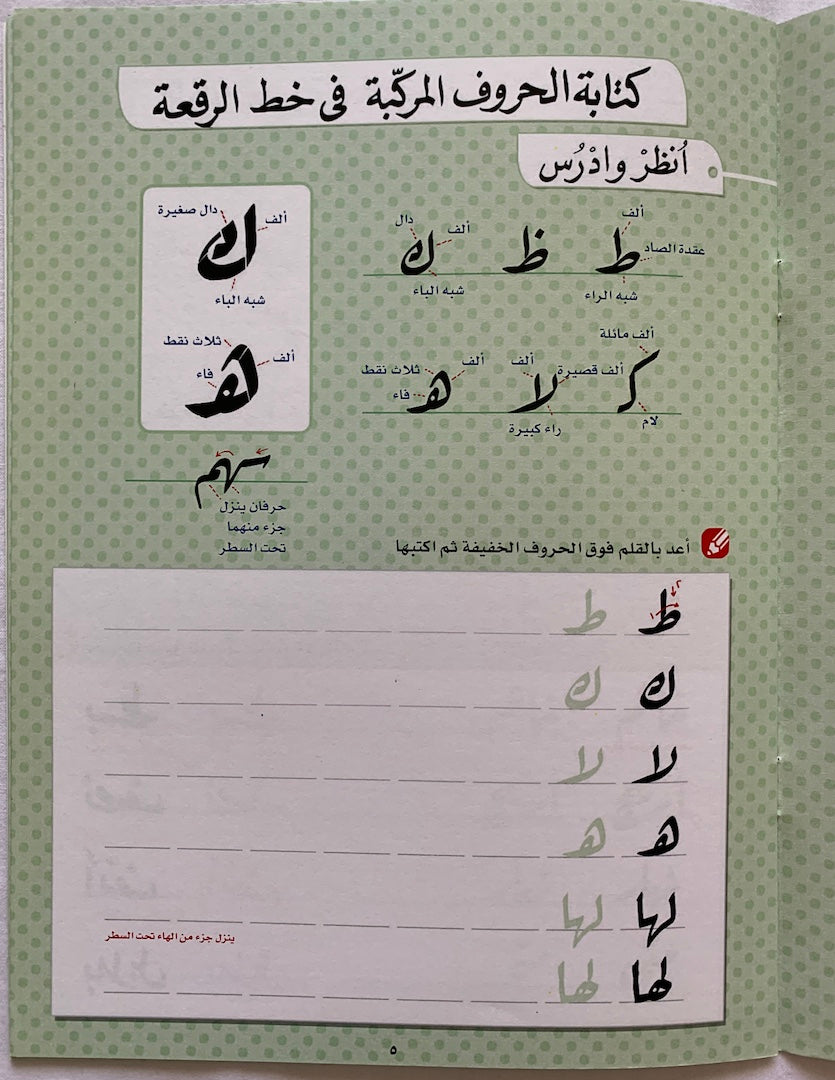 كتابة الحروف المركّبة في خط الرقعة
اُنظرْ وادْرُس
ألف
عقدة الصاد
ط
شبه الراء
ظ
دال
ألف
ك
شبه الباء
ألف مائلة
كـ
لام
ألف
ألف قصيرة
لا
راء كبيرة
ألف
ثلاث نقط
فاء
هـ
دال صغيرة
ألف
ك
شبه الباء
ثلاث نقط
ألف
فاء
هـ
سهم
حرفان ينزل
جزء منهما
تحت السطر
أعد بالقلم فوق الحروف الخفيفة ثم اكتبها
٢
١
ط ط
ك ك
لا لا
هـ هـ
لها لها
ينزل جزء من الهاء تحت السطر
لها لها
٥